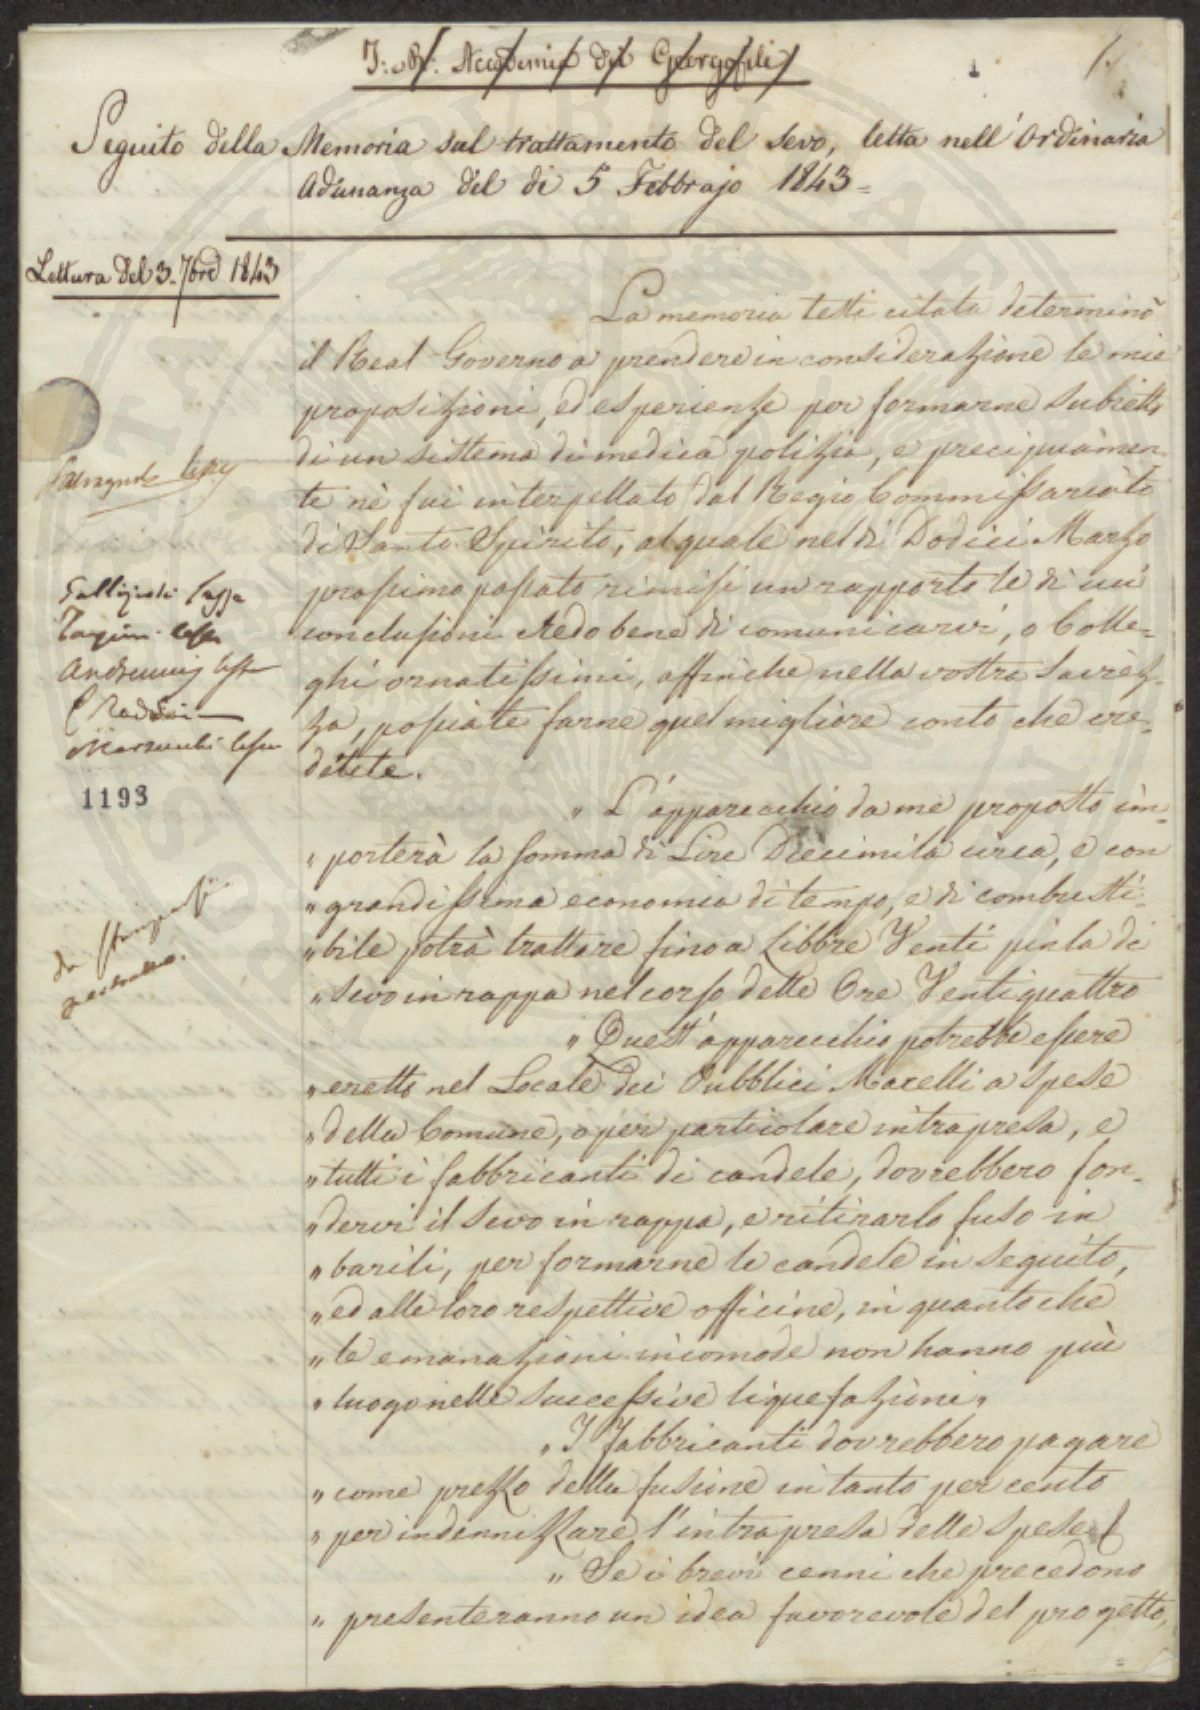 I: R: Accademia dei Georgofili
1.
Seguito della Memoria sul trattamento del sevo, letta nell'Ordinaria
Adunanza del di 5 Febbrajo 1843 =
Lettura del 3. 7bre 1843
La memoria testè citata determinò
il Real Governo a prendere in considerazione le mie
proposizioni, ed esperienze per formarne subietto
di un sistema di medica polizia, e precipuamen
te nè fui interpellato dal Regio Commissariato
di Santo Spirito, al quale nel di Dodici Marzo
prossimo passato rimisi un rapporto le di cui
conclusioni credo bene di comunicarvi, o Colle=
ghi ornatissimi, affinchè nella vostra saviez-
za, possiate farne quel migliore conto che cre-
dete.
1193
„ L'apparecchio da me proposto im=
„ porterà la somma di Lire Diecimila circa, e con
„ grandissima economia di tempo, e di combusti=
„ bile potrà trattare fino a Libbre Venti mila di
„ sevo in rappa nel corso delle Ore Ventiquattro
„ Quest'apparecchio potrebbe essere
„ eretto nel Locale dei Pubblici Macelli a spese
„ della Comune, o per particolare intrapresa, e
„ tutti i fabbricanti di candele, dovrebbero fon-
„ dervi il sevo in rappa, e ritirarlo fuso in
„ barili, per formarne le candele in seguito,
„ ed alle loro respettive officine, in quanto che
„ le emanazioni incomode non hanno più
„ luogo nelle successive liquefazioni„
„ I Fabbricanti dovrebbero pagare
„ come prezzo della fusione un tanto per cento
„ per indennizzare l'intrapresa delle spese
„ Se i brevi cenni che precedono
„ presenteranno un idea favorevole del progetto,